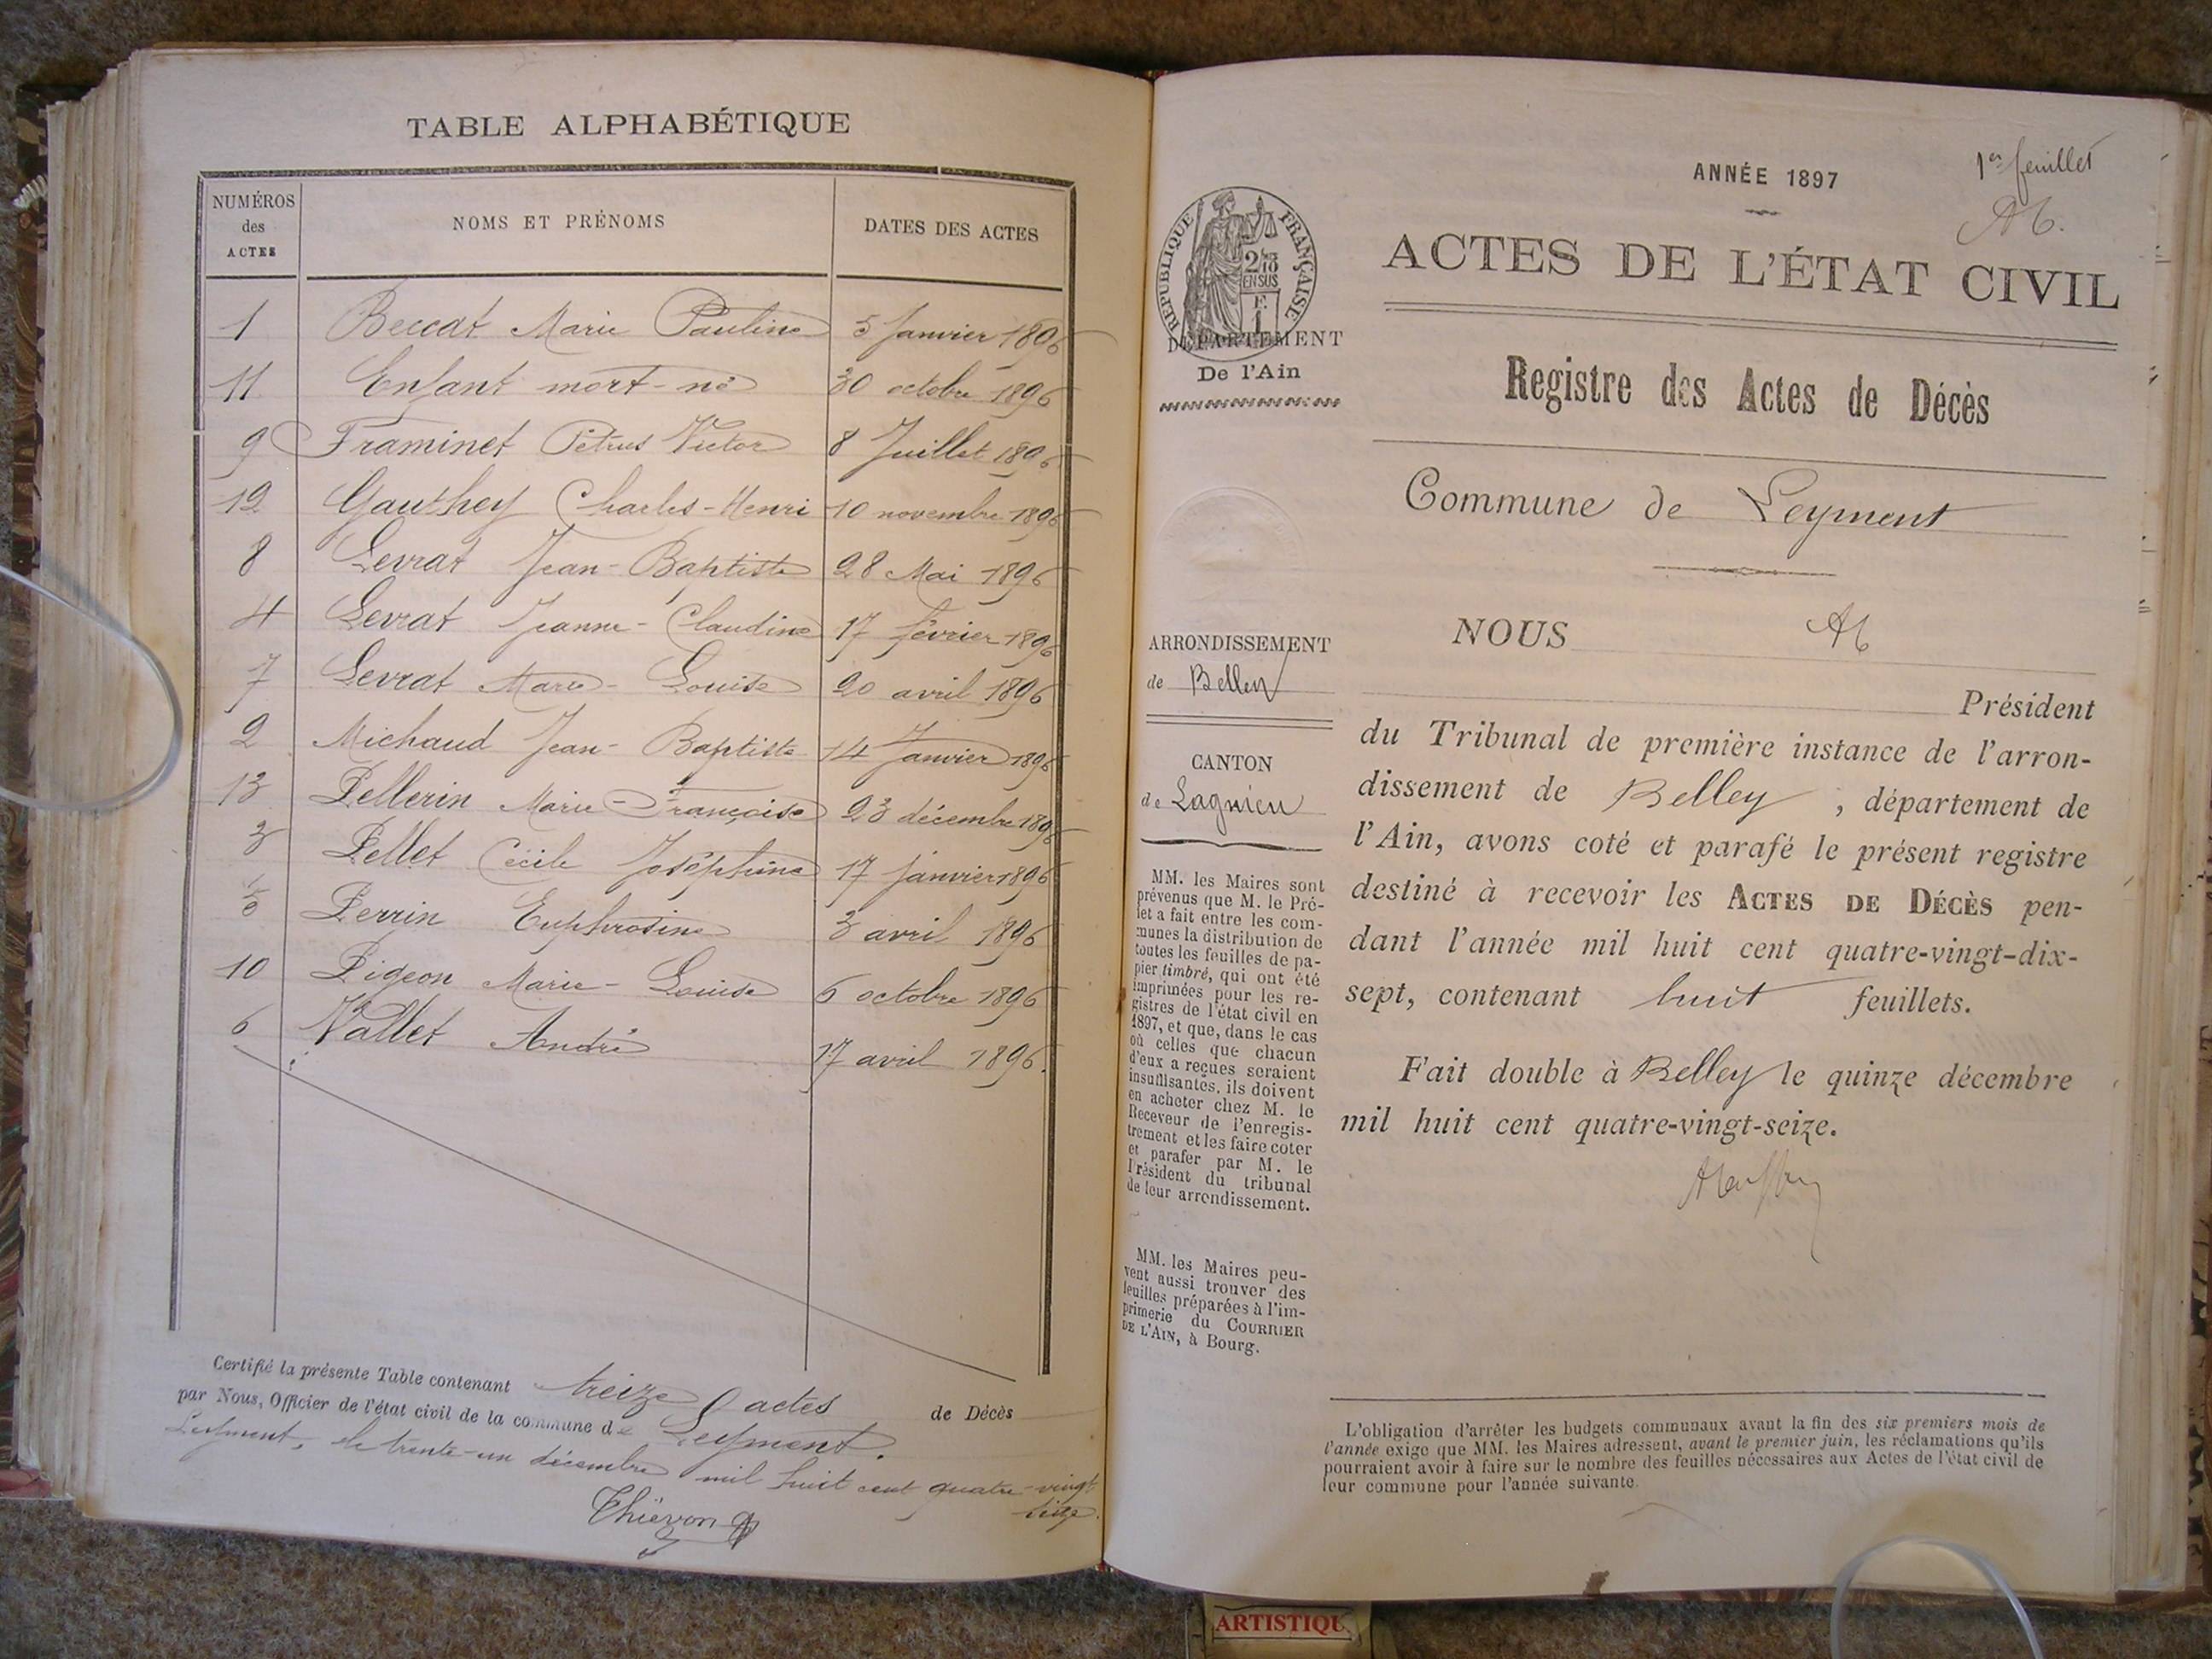 TABLE ALPHABÉTIQUE
NUMÉROS des ACTES NOMS ET PRÉNOMS DATES DES ACTES
1 Beccat Marie Pauline 5 Janvier 1896
11 Enfant mort-né 30 octobre 1896
9 Framinet Pétrus Victor 8 Juillet 1896
12 Gauthey Charles-Henri 10 novembre 1896
8 Levrat Jean-Baptiste 28 Mai 1896
4 Levrat Jeanne-Claudine 17 février 1896
7 Levrat Marie-Louise 20 avril 1896
2 Michaud Jean-Baptiste 14 Janvier 1896
13 Pellerin Marie-Françoise 23 décembre 1896
3 Pellet Cécile Joséphine 17 janvier 1896
5 Perrin Euphrosine 3 avril 1896
10 Pigeon Marie-Louise 6 octobre 1896
6 Vallet André 17 avril 1896.
Certifié la présente Table contenant treize actes de Décès
par Nous, Officier de l'état civil de la commune de Leyment.
Leyment, le trente-un décembre mil huit cent quatre-vingt
seize.
Thiévon
1er feuillet
ANNÉE 1897
ACTES DE L'ÉTAT CIVIL
RÉPUBLIQUE FRANÇAISE
2/10
EN SUS
DÉPARTEMENT
De l'Ain
Registre des Actes de Décès
Commune de Leyment
ARRONDISSEMENT
de Belley
CANTON
de Lagnieu
MM. les Maires sont
prévenus que M. le Pré-
fet a fait entre les com-
munes la distribution de
toutes les feuilles de pa-
pier timbré, qui ont été
imprimées pour les re-
gistres de l'état civil en
1897, et que, dans le cas
où celles que chacun
d'eux a reçues seraient
insuffisantes, ils doivent
en acheter chez M. le
Receveur de l'enregis-
trement et les faire coter
et parafer par M. le
Président du tribunal
de leur arrondissement.
MM. les Maires peu-
vent aussi trouver des
feuilles préparées à l'im-
primerie du COURRIER
DE L'AIN, à Bourg.
NOUS
Président
du Tribunal de première instance de l'arron-
dissement de Belley, département de
l'Ain, avons coté et parafé le présent registre
destiné à recevoir les ACTES DE DÉCÈS pen-
dant l'année mil huit cent quatre-vingt-dix-
sept, contenant huit feuillets.
Fait double à Belley le quinze décembre
mil huit cent quatre-vingt-seize.
L'obligation d'arrêter les budgets communaux avant la fin des six premiers mois de
l'année exige que MM. les Maires adressent, avant le premier juin, les réclamations qu'ils
pourraient avoir à faire sur le nombre des feuilles nécessaires aux Actes de l'état civil de
leur commune pour l'année suivante.
ARTISTIQU